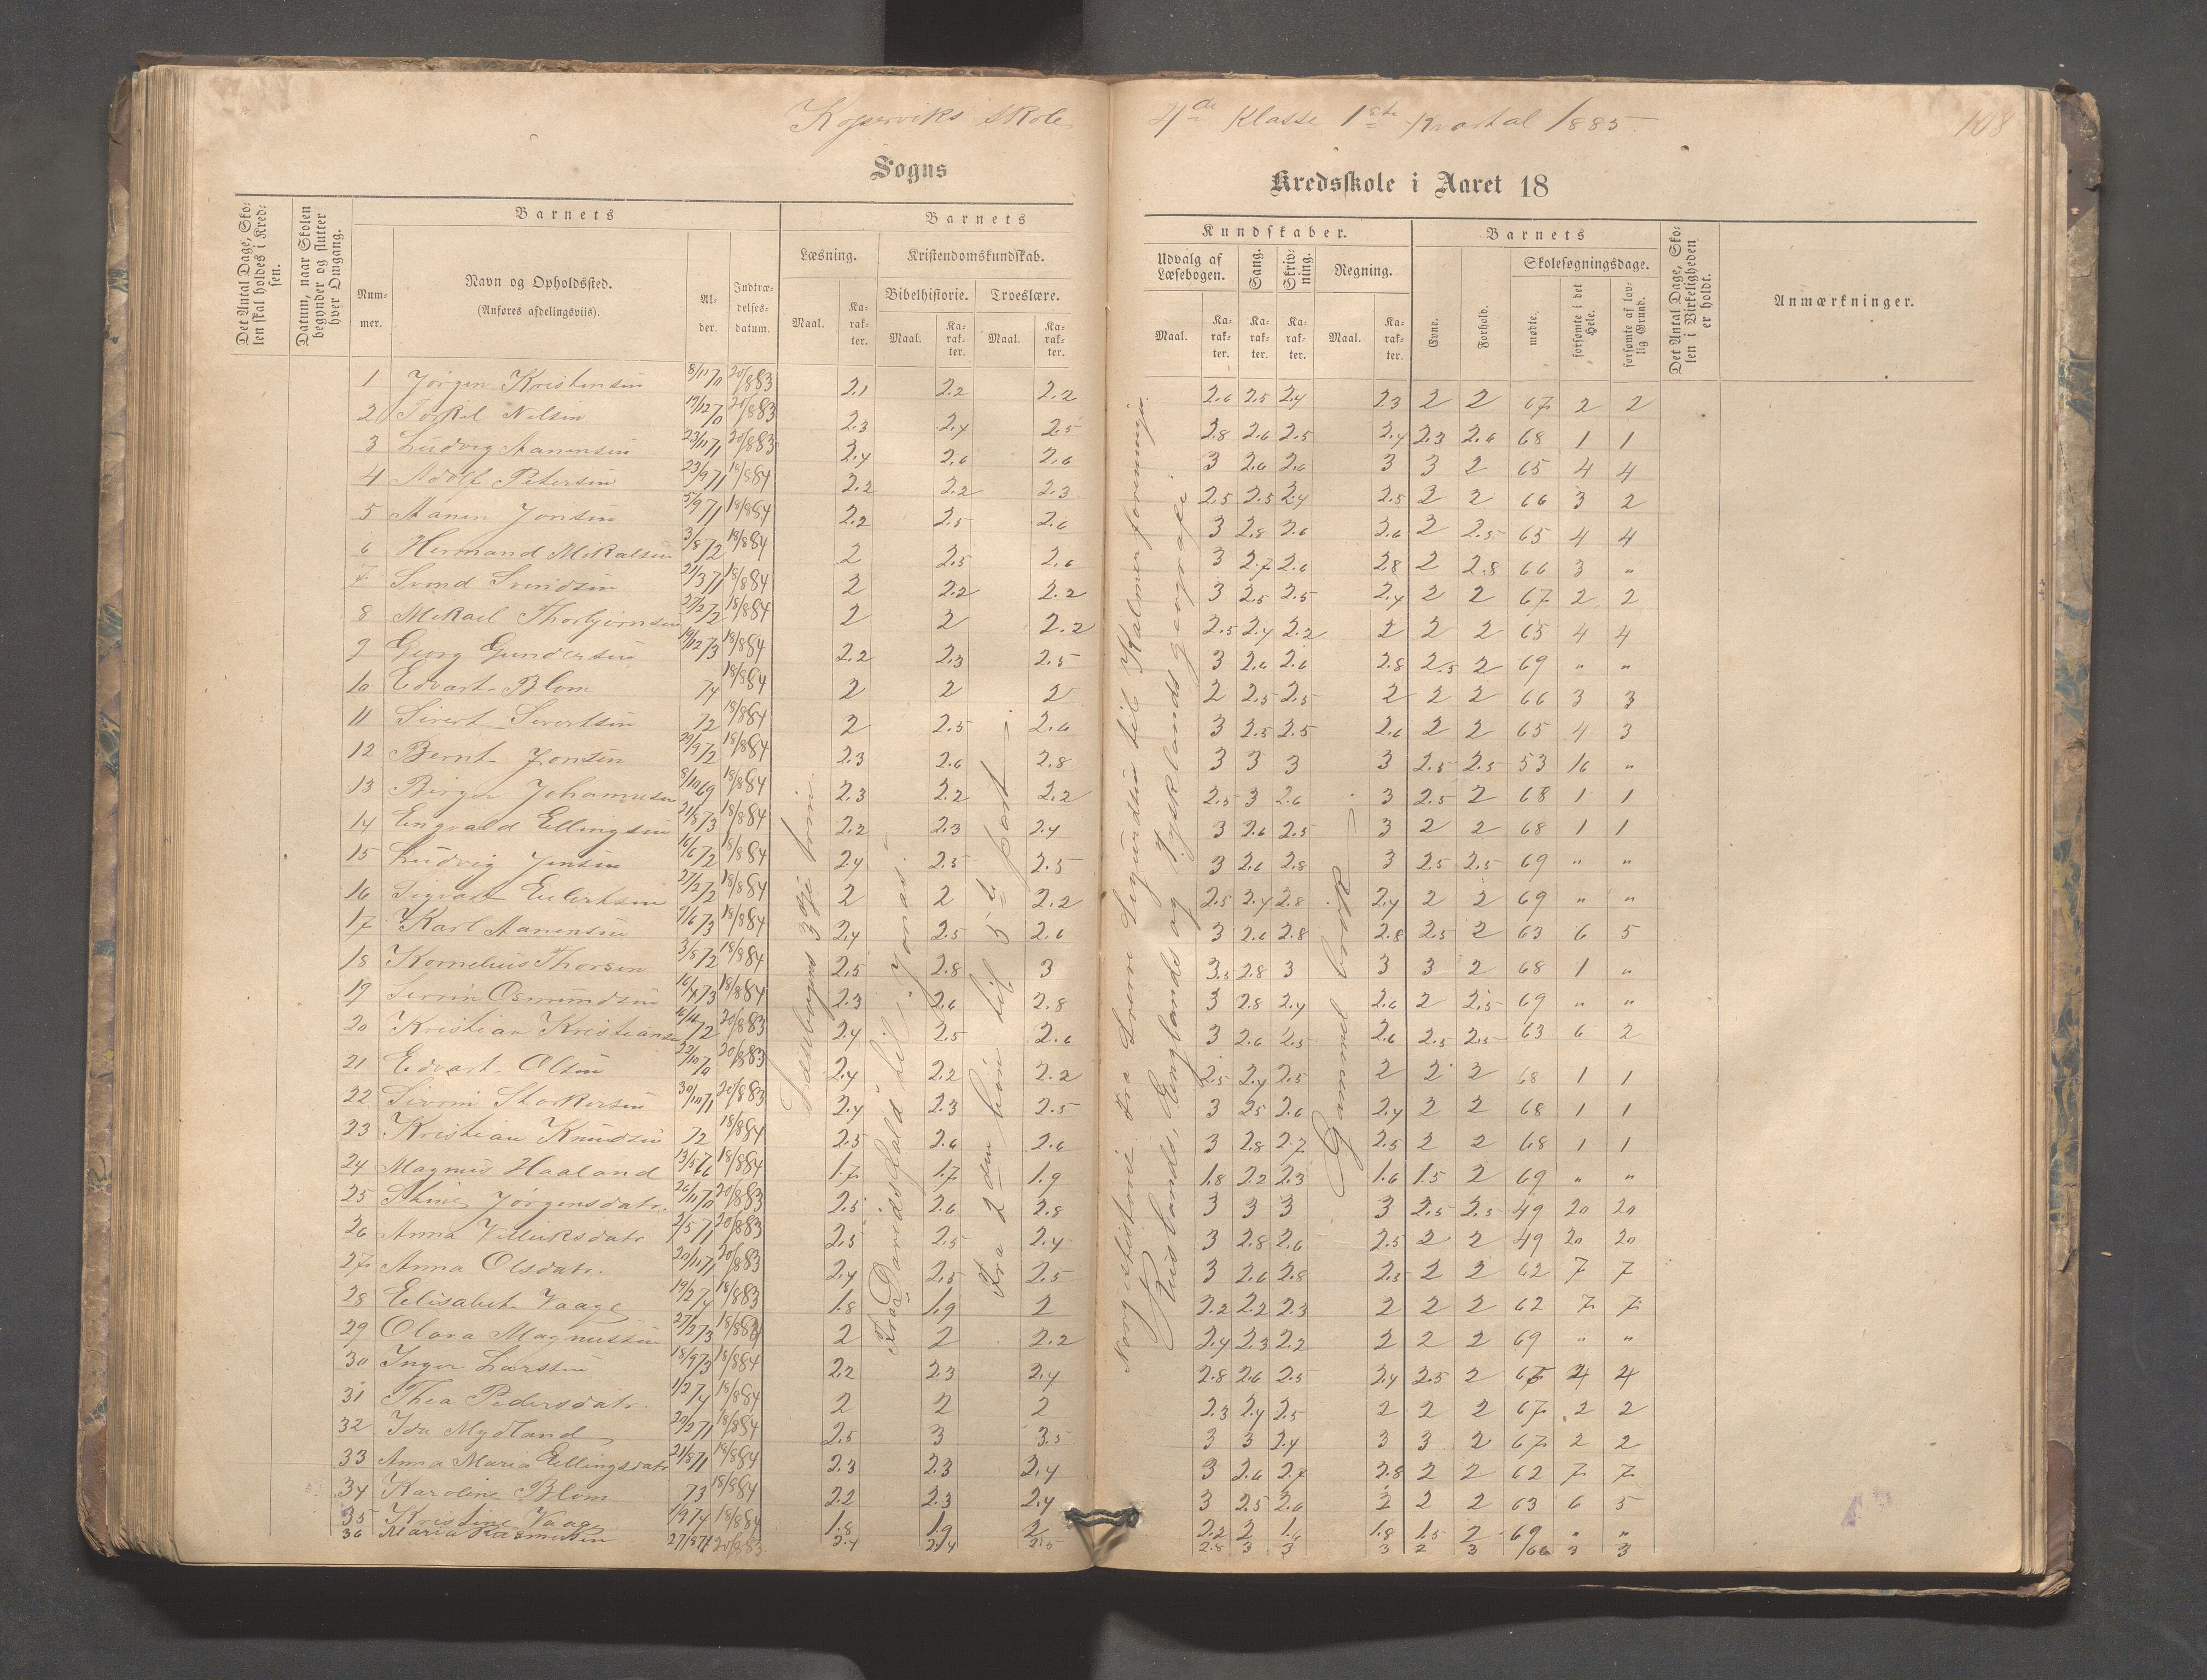 Koperviks Skole
4de Klasse 1ste Kvartal 1885.
108
Sogns
Kredsskole i Aaret 18
Det Antal Dage, Skolen skal holdes i Kredsen.
Datum, naar Skolen begynder og slutter hver Omgang.
Barnets
Nummer.
Navn og Opholdssted.
(Anføres afdelingsviis).
Alder.
Indtrædelsesdatum.
Barnets
Læsning.
Kristendomskundskab.
Bibelhistorie.
Troeslære.
Maal.
Karakter.
Maal.
Karakter.
Maal.
Karakter.
Kundskaber.
Udvalg af Læsebogen.
Sang.
Skrivning.
Regning.
Maal.
Karakter.
Karakter.
Karakter.
Maal.
Karakter.
Barnets
Evne.
Forhold.
Skolesøgningsdage.
mødte.
forsømte i det Hele.
forsømte af lovlig Grund.
Det Antal Dage, Skolen i Virkeligheden er holdt.
Anmærkninger.
1 Jørgen Kristensen 8/11 70 20/8 83 2.1 2.2 2.2 2.6 2.5 2.4 2.3 2 2 67 2 2
2 Torkel Nilsen 19/12 70 20/8 83 2.3 2.4 2.5 2.8 2.6 2.5 2.4 2.3 2.6 68 1 1
3 Ludvig Aanensen 23/11 71 20/8 83 2.4 2.6 2.6 3 2.6 2.6 3 3 2 65 4 4
4 Adolf Petersen 23/9 71 18/8 84 2.2 2.2 2.3 2.5 2.5 2.4 2.5 2 2 66 3 2
5 Aanen Jonsen 5/9 71 18/8 84 2.2 2.5 2.6 3 2.8 2.6 2.6 2 2.5 65 4 4
6 Hermand Mikalsen 3/8 72 18/8 84 2 2.5 2.6 3 2.7 2.6 2.8 2 2.8 66 3 "
7 Svend Svendsen 21/3 71 18/8 84 2 2.2 2.2 3 2.5 2.5 2.4 2 2 67 2 2
8 Mikael Thorbjørnsen 27/2 72 18/8 84 2 2 2.2 2.5 2.4 2.2 2 2 2 65 4 4
9 Georg Gundersen 19/12 73 18/8 84 2.2 2.3 2.5 3 2.6 2.6 2.8 2.5 2 69 " "
10 Edvart Blom 74 18/8 84 2 2 2 2 2.5 2.5 2 2 2 66 3 3
11 Sivert Sivertsen 72 18/8 84 2 2.5 2.6 3 2.5 2.5 2.6 2 2 65 4 3
12 Bernt Jonsen 29/9 72 18/8 84 2.3 2.6 2.8 3 3 3 3 2.5 2.5 53 16 "
13 Birger Johannesen 8/10 69 18/8 84 2.3 2.2 2.2 2.5 3 2.6 3 2.5 2 68 1 1
14 Engvald Ellingsen 21/8 73 18/8 84 2.2 2.3 2.4 3 2.6 2.5 3 2 2 68 1 1
15 Ludvig Jensen 16/6 72 18/8 84 2.4 2.5 2.5 3 2.6 2.8 3 2.5 2.5 69 " "
16 Sigvart Eilertsen 27/2 72 18/8 84 2 2 2.2 2.5 2.4 2.8 2.4 2 2 69 " "
17 Karl Aanensen 9/6 73 18/8 84 2.4 2.5 2.6 3 2.6 2.8 2.8 2.5 2 63 6 5
18 Kornelius Thorsen 3/8 72 18/8 84 2.5 2.8 3 3.3 2.8 3 3 3 2 68 1 "
19 Severin Osmundsen 16/4 73 18/8 84 2.3 2.6 2.8 3 2.8 2.4 2.6 2 2.5 69 " "
20 Kristian Kristiansen 72 20/8 83 2.4 2.5 2.6 3 2.6 2.5 2.6 2.5 2.5 63 6 2
21 Edvart Olsen 22/10 70 20/8 83 2.4 2.2 2.2 2.5 2.4 2.5 2 2 2 68 1 1
22 Severin Storkersen 30/10 71 20/8 83 2.4 2.3 2.5 3 2.5 2.6 2.4 2 2 68 1 1
23 Kristian Knudsen 72 18/8 84 2.5 2.6 2.6 3 2.8 2.7 2.5 2 2 68 1 1
24 Magnus Haaland 13/5 76 18/8 84 1.7 1.7 1.9 1.8 2.2 2.3 1.6 1.5 2 69 " "
25 Stine Jørgensdatr. 26/11 70 20/8 83 2.5 2.6 2.8 3 3 3 3 2.5 2.5 49 20 20
26 Anna Villiksdatr 2/5 71 20/8 83 2.5 2.5 2.4 3 2.8 2.6 2.5 2 2 49 20 20
27 Anna Olsdatr. 20/11 71 20/8 83 2.4 2.5 2.5 3 2.6 2.8 2.3 2 2 62 7 7
28 Elisabet Vaage 19/2 74 18/8 83 1.8 1.9 2 2.2 2.2 2.3 2 2 2 62 7 7
29 Olava Magnussen 27/2 73 18/8 84 2 2 2.2 2.4 2.3 2.2 2 2 2 69 " "
30 Inger Larsen 18/9 73 18/8 84 2.2 2.3 2.4 2.8 2.6 2.5 2.4 2.5 2 65 4 4
31 Thea Pedersdatr. 1/2 74 18/8 84 2 2 2 2.3 2.4 2.5 2 2 2 67 2 2
32 Ida Mydland 20/2 71 18/8 84 2.5 3 3.5 3 3 2.4 3 3 2 67 2 2
33 Anna Maria Ellingsdatr 21/8 71 18/8 84 2.3 2.3 2.4 3 2.6 2.7 2.8 2 2 62 7 7
34 Karoline Blom 73 18/8 84 2.2 2.3 2.4 3 2.5 2.6 2 2 2 63 6 5
35 Kristine Vaage 1/9 74 18/8 84 1.8 1.9 2 2.2 2 1.6 1.8 1.5 2 69 " "
36 Maria Rasmussen 27/5 71 20/8 83 2.4 2.4 2.5 2.8 3 3 3 2 3 66 3 3
Læsebogens 3dje trin.
Fra Davids Fald til Jonas.
Fra 2den bøn til 5te part
Norgeshistorie fra Sverre Sigurdsen til Kalmarforeningen.
Ruslands, Englands og Tysklands geografi.
Gammel brøk